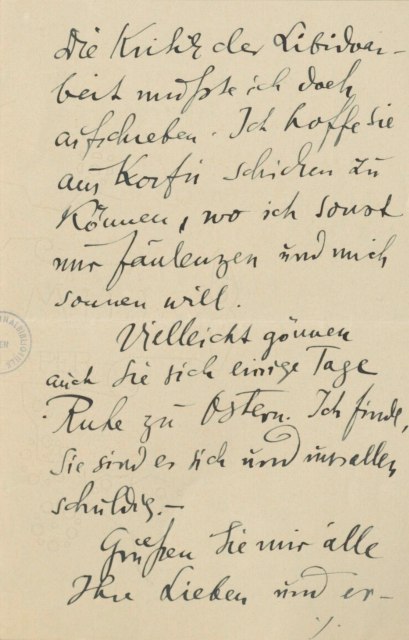 Die Kritik der Libidoar-
beit mußte ich doch
aufschieben. Ich hoffe sie
aus Korfu schicken zu
können, wo ich sonst
nur faulenzen und mich
sonnen will.
Vielleicht gönnen
auch Sie sich einige Tage
Ruhe zu Ostern. Ich finde,
Sie sind es sich und uns allen
schuldig.—
Grüßen Sie mir alle
Ihre Lieben und er-
./.